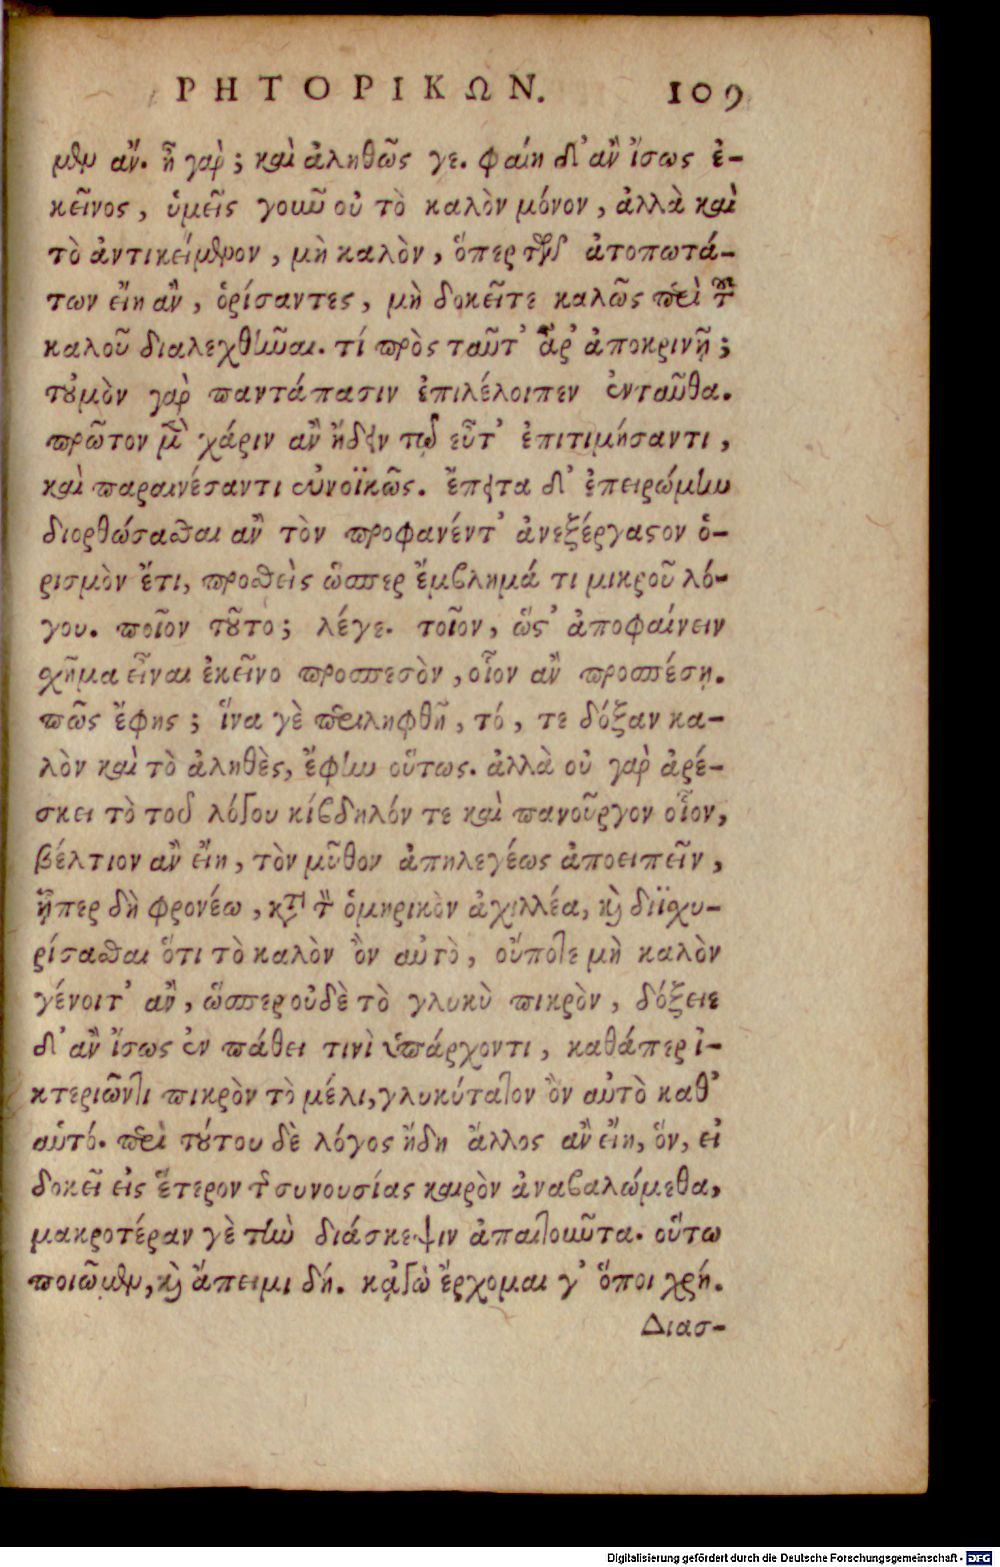 ΡΗΤΟΡΙΚΩΝ. 109
μεν ἄν. ἦ γαρ; καὶ ἀληθῶς γε. φαίη δ' ἂν ἴσως ἐ-
κεῖνος, ὑμεῖς γοῦν οὐ τὸ καλὸν μόνον, ἀλλὰ καὶ
τὸ ἀντικείμενον, μὴ καλὸν, ὅπερ τῶν ἀτοπωτά-
των εἴη ἂν, ὁρίσαντες, μὴ δοκεῖτε καλῶς περὶ τοῦ
καλοῦ διαλεχθῆναι. τί πρὸς ταῦτ' ἄρ' ἀποκρινῇ;
τοὐμὸν γαρ παντάπασιν ἐπιλέλοιπεν ἐνταῦθα.
πρῶτον μὲν χάριν ἂν ᾔδειν τῷ εὖτ' ἐπιτιμήσαντι,
καὶ παραινέσαντι εὐνοϊκῶς. ἔπειτα δ' ἐπειρώμην
διορθώσασθαι ἂν τὸν προφανέντ' ἀνεξέργαστον ὁ-
ρισμὸν ἔτι, προσθεὶς ὥσπερ ἔμβλημά τι μικροῦ λό-
γου. ποῖον τοῦτο; λέγε. τοῖον, ὥστ' ἀποφαίνειν
χῆμα εἶναι ἐκεῖνο προσπεσὸν, οἷον ἂν προσπέσῃ.
πῶς ἔφης; ἵνα γὲ περιληφθῇ, τό, τε δόξαν κα-
λὸν καὶ τὸ ἀληθὲς, ἔφην οὕτως. ἀλλὰ οὐ γαρ ἀρέ-
σκει τὸ τοῦ λόγου κίβδηλόν τε καὶ πανοῦργον οἷον,
βέλτιον ἂν εἴη, τὸν μῦθον ἀπηλεγέως ἀποειπεῖν,
ᾗπερ δὴ φρονέω, κατὰ τὸν ὁμηρικὸν ἀχιλλέα, καὶ διϊσχυ-
ρίσασθαι ὅτι τὸ καλὸν ὂν αὐτὸ, οὔποτε μὴ καλὸν
γένοιτ' ἂν, ὥσπερ οὐδὲ τὸ γλυκὺ πικρὸν, δόξειε
δ' ἂν ἴσως ἐν πάθει τινὶ ὑπάρχοντι, καθάπερ ἰ-
κτεριῶντι πικρὸν τὸ μέλι, γλυκύτατον ὂν αὐτὸ καθ'
αὑτό. περὶ τούτου δὲ λόγος ἤδη ἄλλος ἂν εἴη, ὃν, εἰ
δοκεῖ εἰς ἕτερον τῆς συνουσίας καιρὸν ἀναβαλώμεθα,
μακροτέραν γὲ τὴν διάσκεψιν ἀπαιτοῦντα. οὕτω
ποιῶμεν, καὶ ἄπειμι δή. κᾀγὼ ἔρχομαι γ' ὅποι χρή.
Διασ-
Digitalisierung gefördert durch die Deutsche Forschungsgemeinschaft - DFG